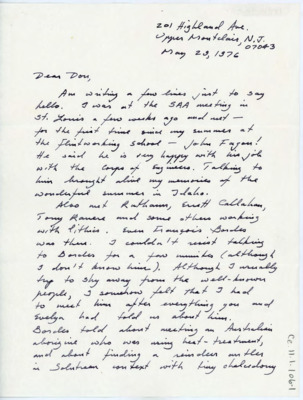 201 Highland Ave.
Upper Montclair, N.J.
07043
May 23, 1976
Dear Don,
Am writing a few lines just to say
hello. I was at the SAA meeting in
St. Louis a few weeks ago and met —
for the first time since my summer at
the flintworking school — John Fagan!
He said he is very happy with his job
with the Corps of Engineers. Talking to
him brought alive my memories of the
wonderful summer in Idaho.
Also met Errett Callahan,
Tony Ranere and some others working
with lithics. Even François Bordes
was there. I couldn't resist talking
to Bordes for a few minutes (although
I don't know him). Although I usually
try to shy away from the well-known
people, I somehow felt that I had
to meet him after everything you and
Evelyn had told us about him.
Bordes told about meeting an Australian
aborigine who was using heat-treatment,
and about finding a reindeer antler
in Solutrean context with tiny chalcedony